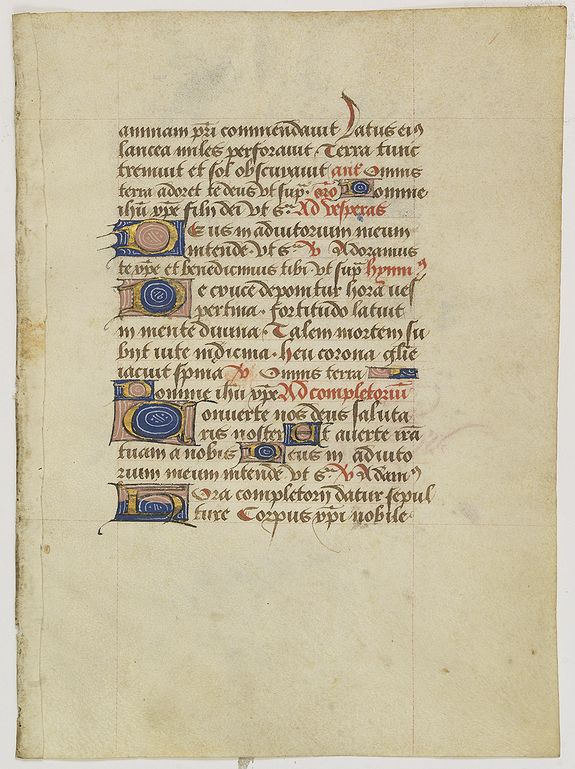 animam pr̄i commendauit Latus eiꝰ
lancea miles perforauit · Terra tunc
tremuit et sol obscurauit ant̄ Omnis
terra adoret te deus vt sup̄ · oro Domine
ihū xp̄e fili dei vt sᵃ · Ad vesperas
Deus in adiutorium meum
intende · vt sᵃ ℣ Adoramus
te xp̄e et benedicimus tibi · vt sup̄ hymnꝰ
De cruce deponitur hora ves
pertina · fortitudo latuit
in mente diuina · Talem mortem su
bijt vite medicina · heu corona glīe
iacuit spina ℣ Omnis terra
Domine ihū xp̄e Ad completoriū
Conuerte nos deus saluta
ris noster Et auerte irā
tuam a nobis Deus in adiuto
rium meum intende vt sᵃ ℣ Adamꝰ
Hora completorij datur sepul
ture Corpus xp̄i nobile